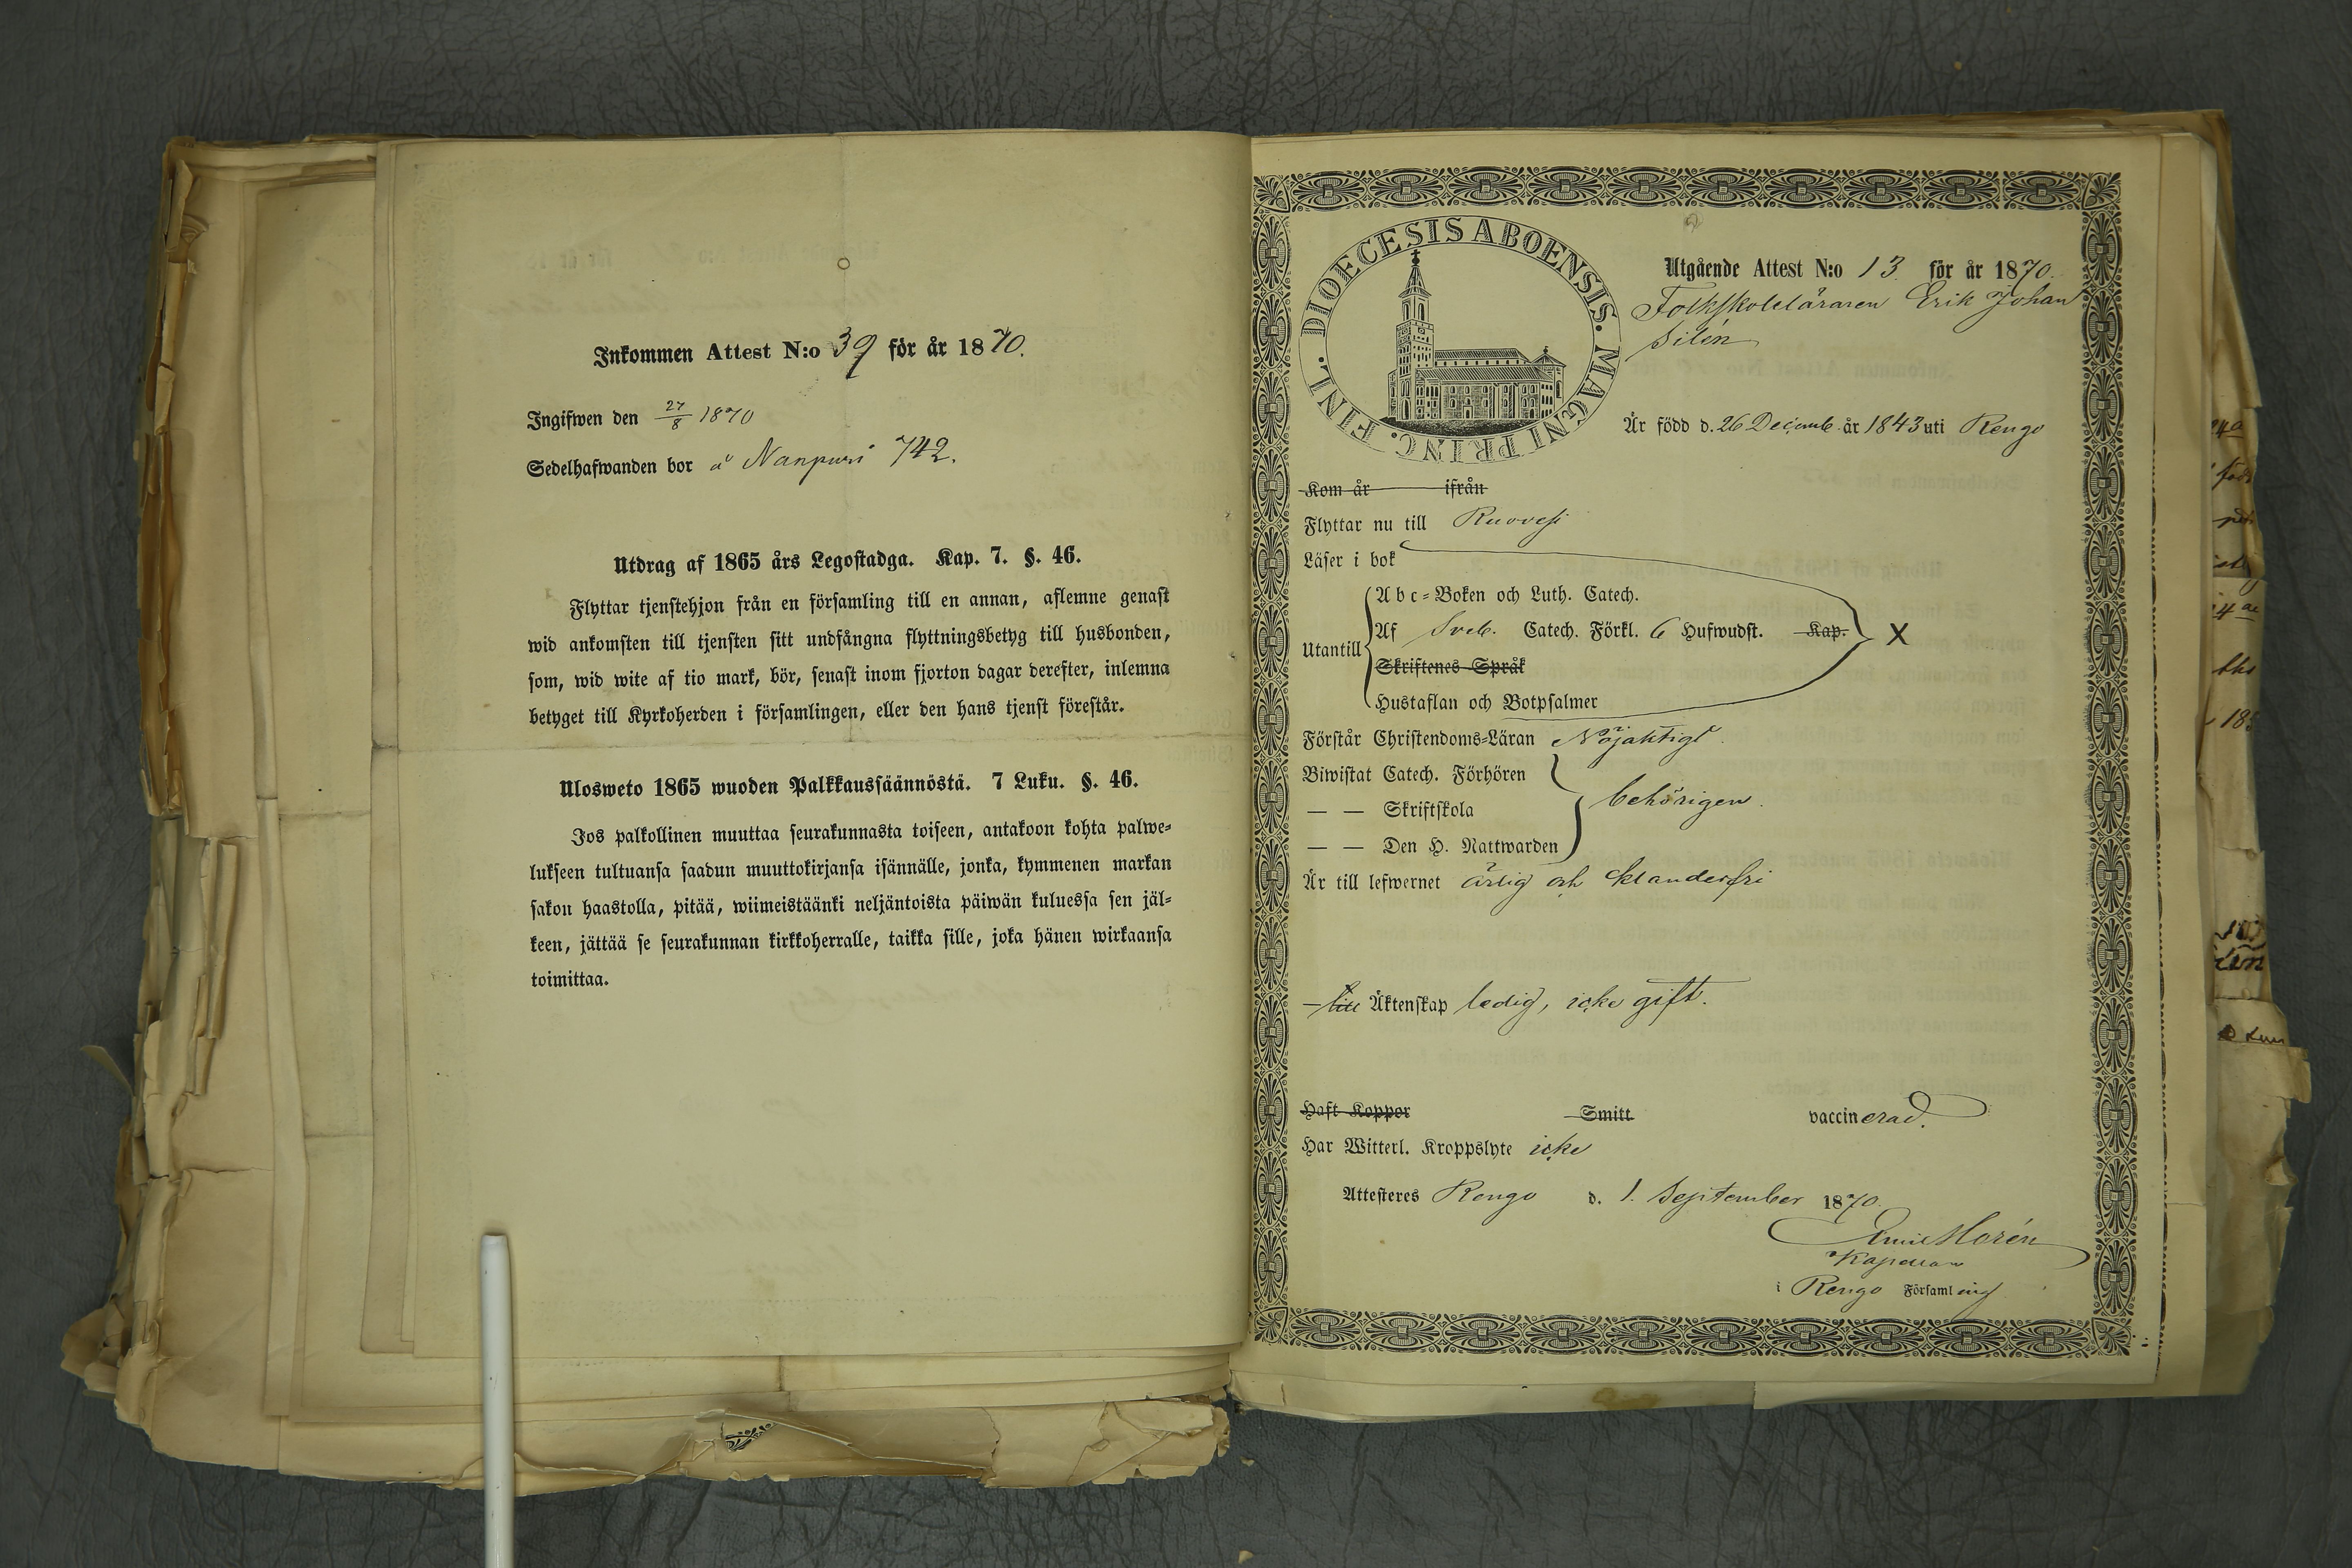 Inkommen Attest N:o 39 för år 1870.
Ingifwen den 27/8 1870
Sedelhafwanden bor å Nanpuri 742.
Utdrag af 1865 års Legostadga. Kap. 7. §. 46.
Flyttar tjenstehjon från en församling till en annan, aflemne genast
wid ankomsten till tjensten sitt undfångna flyttningsbetyg till husbonden,
som, wid wite af tio mark, bör, senast inom fjorton dagar derefter, inlemna
betyget till Kyrkoherden i församlingen, eller den hans tjenst förestår.
Ulosweto 1865 wuoden Palkkaussäännöstä. 7 Luku. §. 46.
Jos palkollinen muuttaa seurakunnasta toiseen, antakoon kohta palwe-
lukseen tultuansa saadun muuttokirjansa isännälle, jonka, kymmenen markan
sakon haastolla, pitää, wiimeistäänki neljäntoista päiwän kuluessa sen jäl-
keen, jättää se seurakunnan kirkkoherralle, taikka sille, joka hänen wirkaansa
toimittaa.
DIOECESIS ABOENSIS. MAGNI PRINC. FINL.
Utgående Attest N:o 13 för år 1870.
Folkskoleläraren Erik Johan
Silén
Är född d. 26 Decemb. år 1843 uti Rengo
Kom år ifrån
Flyttar nu till Ruovesi
Läser i bok
Abc-Boken och Luth. Catech.
Utantill Af Sveb. Catech. Förkl. 6 Hufwudst. Kap. X
Skriftenes Språk
Hustaflan och Botpsalmer
Förstår Christendoms-Läran Nöjaktigt.
Biwistat Catech. Förhören
— — Skriftskola behörigen.
— — Den H. Nattwarden
Är till lefwernet ärlig och klanderfri
till Äktenskap ledig, icke gift.
Haft Koppor Smitt vaccinerad.
Har Witterl. Kroppslyte icke
Attesteres Rengo d. 1. September 1870.
Emil Horén
Kapellan
i Rengo Församling